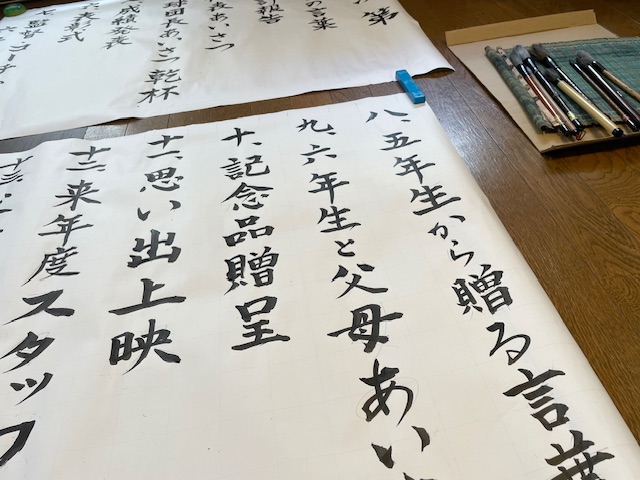 第
の言葉
報告
長あいさつ
団長あいさつ乾杯
成績発表
表彰式
監督コーチ
八、五年生から贈る言葉
九、六年生と父母あい
十、記念品贈呈
十一、思い出上映
十二、来年度スタッフ
十三、